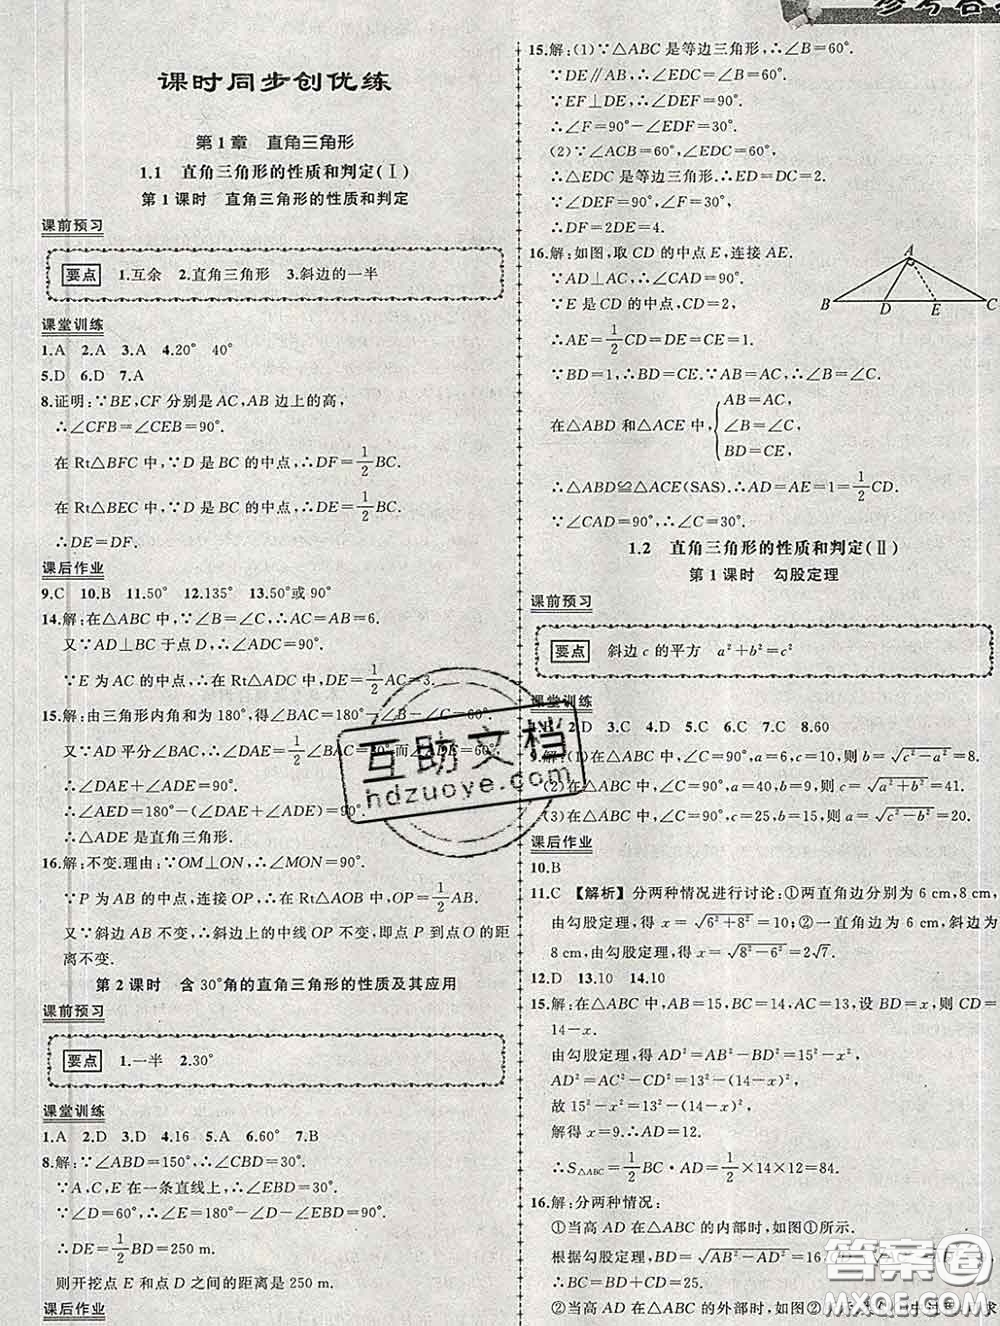 参考答案
课时同步创优练
第1章 直角三角形
1.1 直角三角形的性质和判定(Ⅰ)
第1课时 直角三角形的性质和判定
课前预习
要点 1.互余 2.直角三角形 3.斜边的一半
课堂训练
1.A 2.A 3.A 4.20° 40°
5.D 6.D 7.A
8.证明:∵BE,CF 分别是 AC,AB 边上的高,
∴∠CFB=∠CEB=90°.
在 Rt△BFC 中,∵D 是 BC 的中点,∴DF=1/2BC.
在 Rt△BEC 中,∵D 是 BC 的中点,∴DE=1/2BC.
∴DE=DF.
课后作业
9.C 10.B 11.50° 12.135° 13.50°或 90°
14.解:在△ABC 中,∵∠B=∠C,∴AB=AC=6.
又∵AD⊥BC 于点 D,∴∠ADC=90°.
∵E 为 AC 的中点,∴在 Rt△ADC 中,DE=1/2AC=3.
15.解:由三角形内角和为 180°,得∠BAC=180°-∠B-∠C=60°.
又∵AD 平分∠BAC,∴∠DAE=1/2∠BAC=30°,而∠ADE=60°,
∴∠DAE+∠ADE=90°.
∴∠AED=180°-(∠DAE+∠ADE)=90°.
∴△ADE 是直角三角形.
16.解:不变.理由:∵OM⊥ON,∴∠MON=90°.
∵P 为 AB 的中点,连接 OP,∴在 Rt△AOB 中,OP=1/2AB.
又∵斜边 AB 不变,∴斜边上的中线 OP 不变,即点 P 到点O 的距
离不变.
第2课时 含 30°角的直角三角形的性质及其应用
课前预习
要点 1.一半 2.30°
课堂训练
1.A 2.D 3.D 4.16 5.A 6.60° 7.B
8.解:∵∠ABD=150°,∴∠CBD=30°.
∵A,C,E 在一条直线上,∴∠EBD=30°.
∵∠D=60°,∴∠E=180°-∠D-∠EBD=90°.
∴DE=1/2BD=250 m.
则开挖点 E 和点 D 之间的距离是 250 m.
课后作业
15.解:(1)∵△ABC 是等边三角形,∴∠B=60°.
∵DE∥AB,∴∠EDC=∠B=60°.
∵EF⊥DE,∴∠DEF=90°.
∴∠F=90°-∠EDF=30°.
(2)∵∠ACB=60°,∠EDC=60°,
∴△EDC 是等边三角形.∴ED=DC=2.
∵∠DEF=90°,∠F=30°,
∴DF=2DE=4.
16.解:如图,取 CD 的中点 E,连接 AE.
∵AD⊥AC,∴∠CAD=90°.
∵E 是 CD 的中点,
∴AE=1/2CD=DE=CE=1.
∵BD=1,∴BD=CE.∵AB=AC,∴∠B=∠C.
在△ABD 和△ACE 中,{AB=AC,
∠B=∠C,
BD=CE,
∴△ABD≌△ACE(SAS).∴AD=AE=1=1/2CD.
∵∠CAD=90°,∴∠C=30°.
A
B D E C
1.2 直角三角形的性质和判定(Ⅱ)
第1课时 勾股定理
课前预习
要点 斜边 c 的平方 a²+b²=c²
课堂训练
2.D 3.C 4.D 5.C 6.C 7.C 8.60
9.解:(1)在△ABC 中,∠C=90°,a=6,c=10,则 b=√(c²-a²)=8.
(2)在△ABC 中,∠C=90°,a=40,b=9,则 c=√(a²+b²)=41.
(3)在△ABC 中,∠C=90°,c=25,b=15,则 a=√(c²-b²)=20.
课后作业
10.B
11.C 【解析】分两种情况进行讨论:①两直角边分别为 6 cm,8 cm,
由勾股定理,得 x=√(6²+8²)=10;②一直角边为 6 cm,斜边为
8 cm,由勾股定理,得 x=√(8²-6²)=2√7.
12.D 13.10 14.10
15.解:在△ABC 中,AB=15,BC=14,AC=13,设 BD=x,则 CD=
14-x.
由勾股定理,得 AD²=AB²-BD²=15²-x²,
AD²=AC²-CD²=13²-(14-x)²,
故 15²-x²=13²-(14-x)².
解得 x=9.∴AD=12.
∴S△ABC=1/2BC·AD=1/2×14×12=84.
16.解:分两种情况:
①当高 AD 在△ABC 的内部时,如图①所示.
根据勾股定理,BD=√(AB²-AD²)=16,
∴BC=BD+CD=25.
②当高 AD 在△ABC 的外部时,如图②
互助文档
hdzuoye.com
答案圈
MXQE.COM